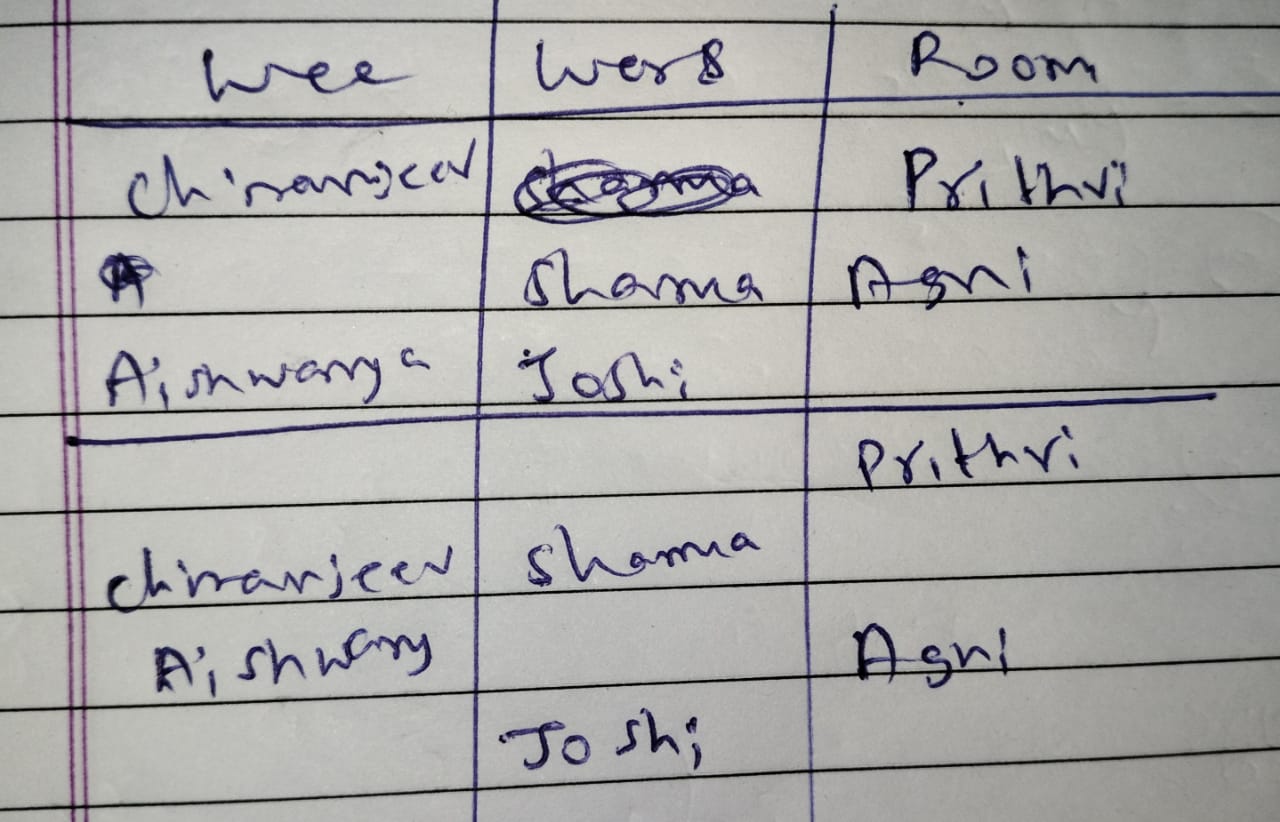 Wee Wers Room
Chiranjeev Prithvi
Sharma Agni
Aishwarya Joshi
Prithvi
Chiranjeev Sharma
Aishwary Agni
Joshi